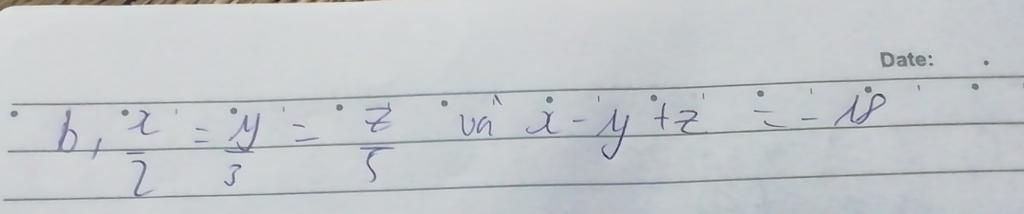 Date:
b, x/2 = y/3 = z/5 và x - y + z = - 18